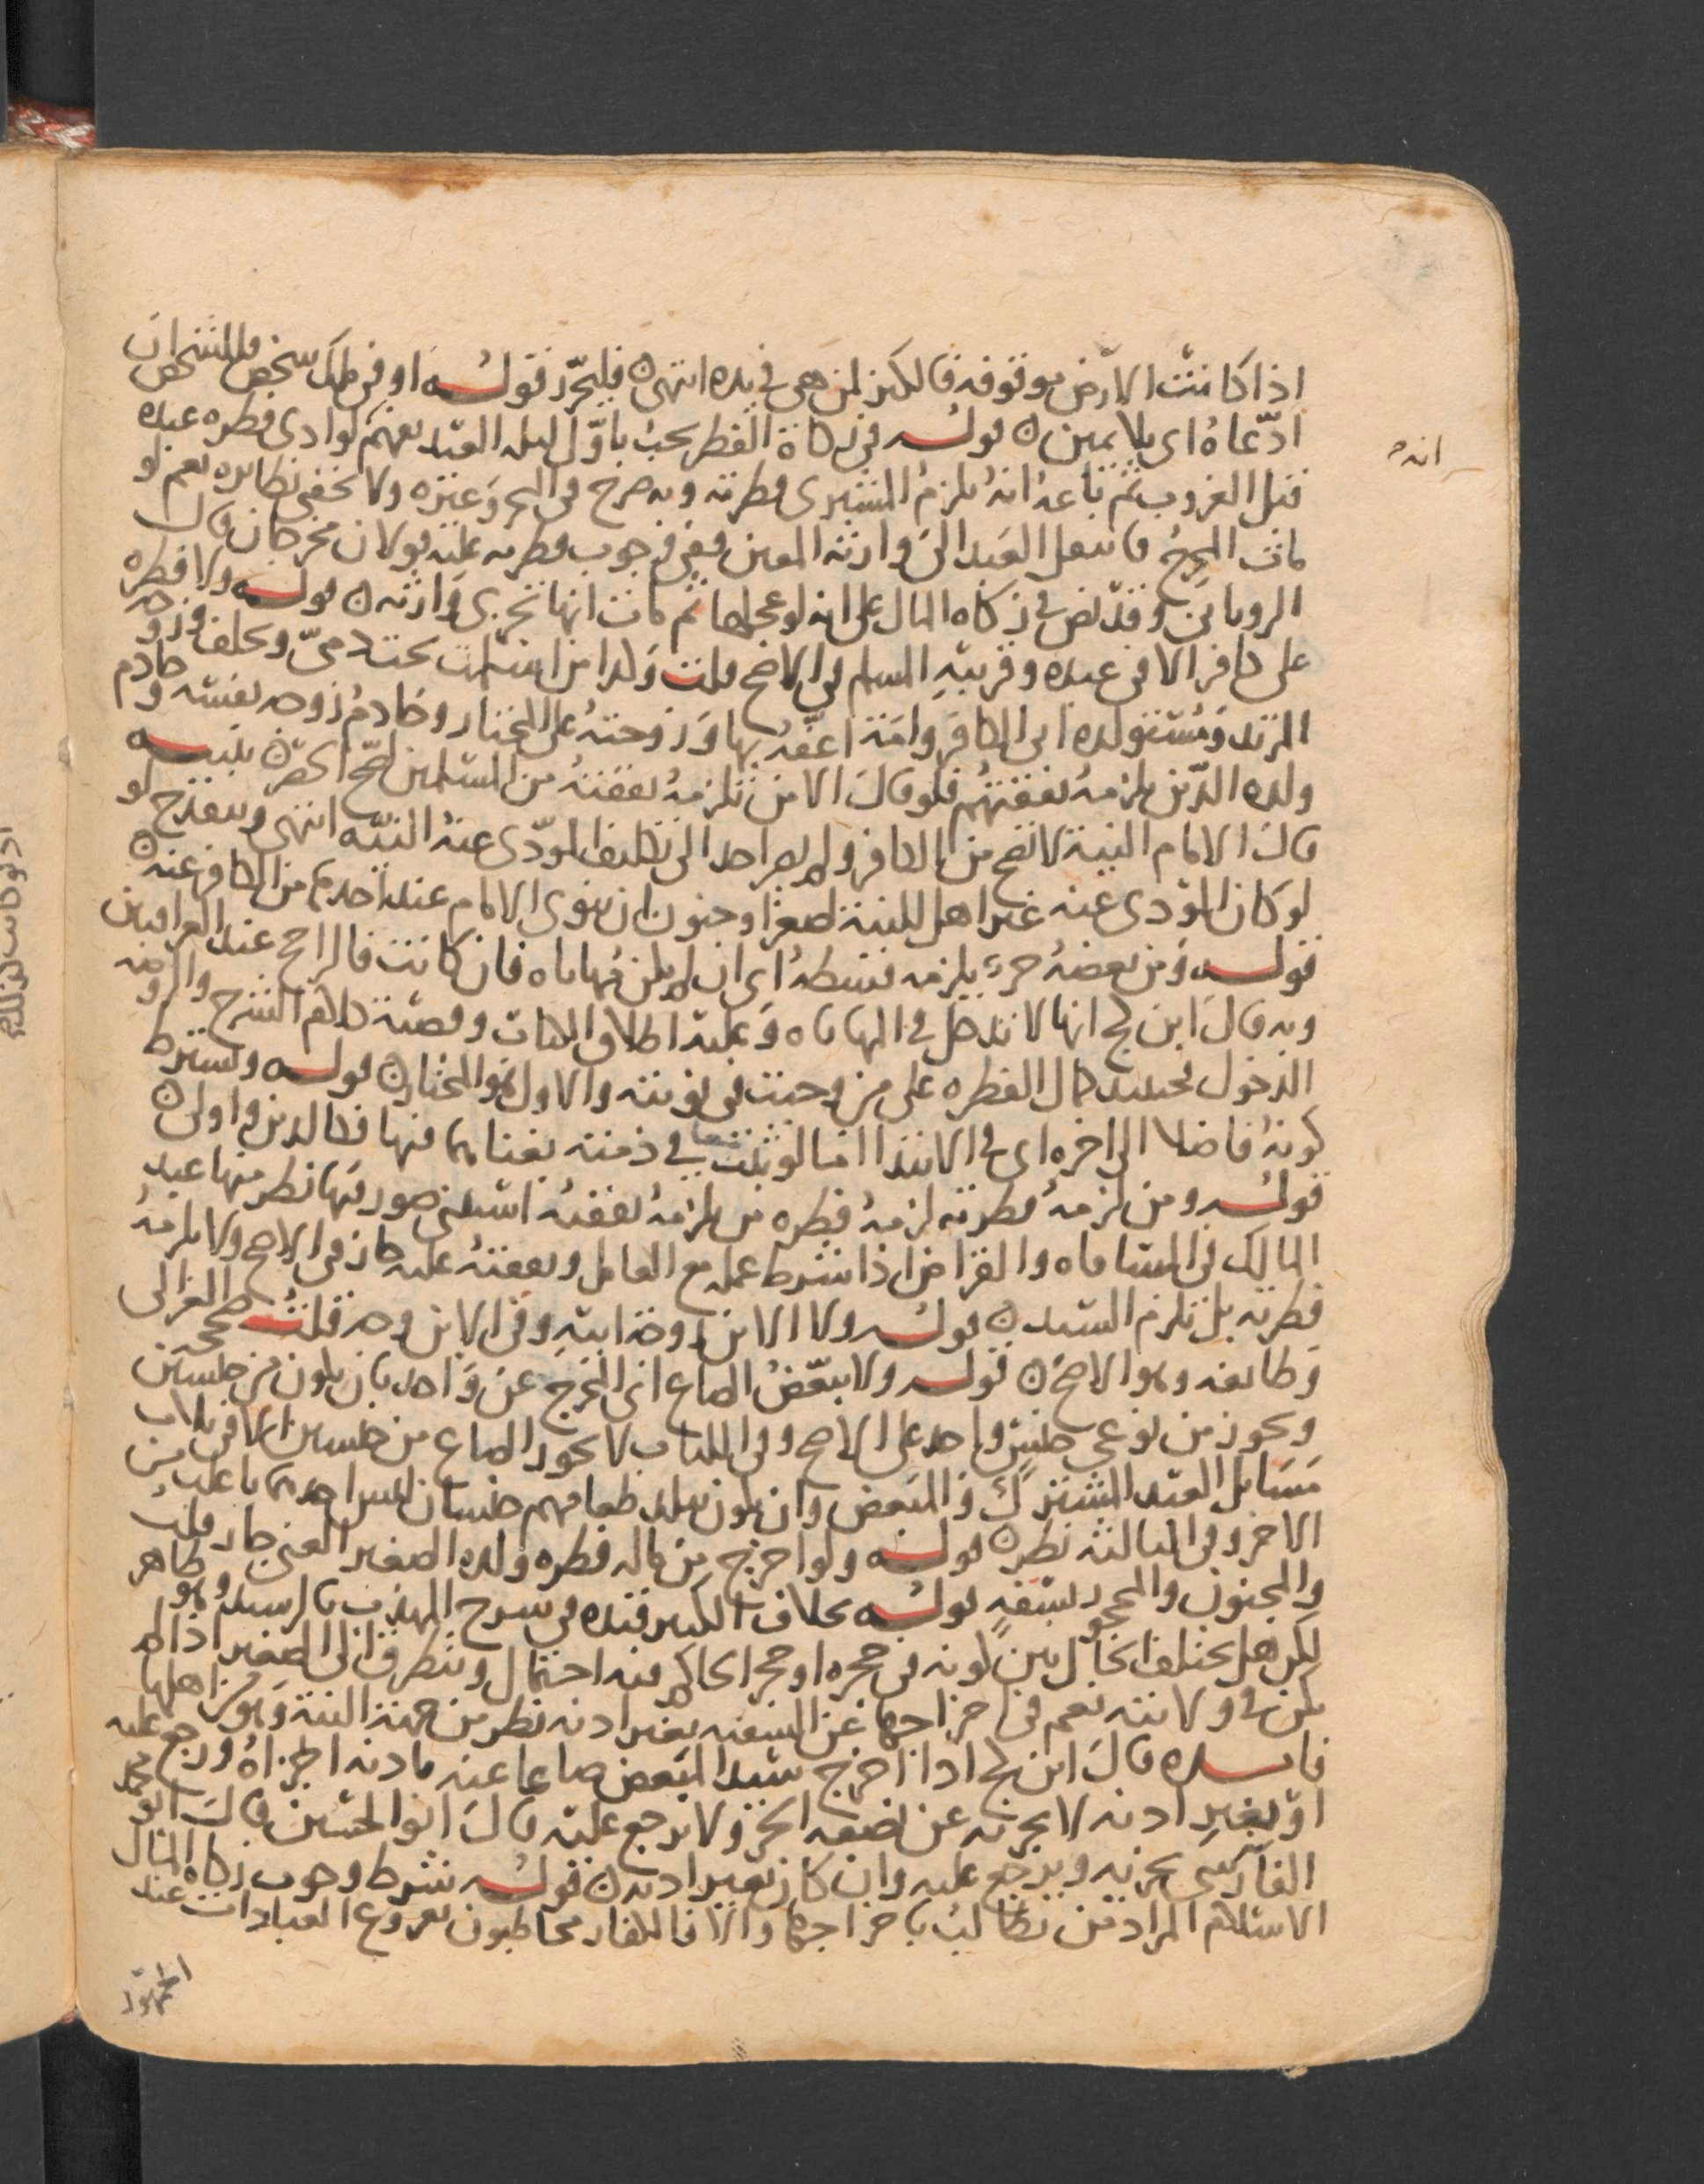 اذا كانت الارض موقوفه فالكنز لمن هي في يده انتهى فليحرر قوله او في ملك شخص فللشخص ان
ادّعاهُ اى بلا يمين قوله في زكاة الفطر تجب باوّل ليله العيد يفهم لو ادى فطره عبده
قبل الغروب ثم باعهُ انهُ يلزمُ المشترى فطرته وبه صرح في البحر وغيره ولا يخفى نظايره نعم لو
مات المخرجُ فانتقل العبد الى وارثه المعين ففي وجوب فطرته عليه قولان مخرجان قال
الروياني وقد نص في زكاه المال على انه لو عجلها ثم مات انها تجزى وارثه قوله ولا فطره
على كافر الا في عبده وقريبهِ المسلم في الاصح قلت ولدا من اسلمت تحت ذميّ وتخلف وزوجه
المرتد ومُستولده ابى الكافر وامَة اعفّه بها وزوجتهُ على المختار وخادمُ زوجه نفسه وخادم
ولده الذين يلزمهُ نفقتهُم فلو قال الا من تلزمهُ نفقتهُ من المسلمين لصح الحصر تنبيه
قال الامام النية لا تصح من الكافر ولم يصر احد الى تكليف المؤدّى عنهُ النيّه انتهى وينقدح لو
لو كان المؤدى عنه غير اهل للنية لصغر او جنون ان ينوى الامام عند اخذها من الكافر عنه
قوله ومن بعضهُ حر يلزمه قسطهُ اى ان لم يكن مُهاياه فان كانت فالراجح عند العراقيين
وبه قال ابن كج انها لا تدخل في المهاياه وعليه اطلاق الكتاب وقضية كلام الشرح والروضه
الدخول فحينئذ كمال الفطره على من وجبت في نوبته والاول هو المختار قوله ويشترط
كونهُ فاضلا الى اخره اى في الابتدا اما لو ثبتت في ذمته بغناه بها فيها فكالدين واولى
قوله ومن لزمهُ فطرته لزمهُ فطره من يلزمهُ نفقتهُ استثنى صور فيها نظر منها عبد
المالك في المساقاه والقراض اذا شرط عمله مع العامل ونفقتهُ عليه جاز في الاصح ولا يلزمهُ
فطرته بل تلزم السيد قوله ولا الابن زوجة ابيهِ وفي الابن وجه قلتُ صححه الغزالى
وطايفه وهو الاصح قوله ولا يبعّضُ الصاع اى المخرج عن واحد بان يكون من جنسين
ويجوز من نوعي جنسٍ واحد على الاصح وفي اللباب لا يجوز الصاع من جنسين الا في ثلاث
مسايل العبد المشترك والمبعض وان يكون ببلد طعامهم جنسان ليس احدهما باغلب من
الاخر وفي الثالثه نظر قوله ولو اخرج من ماله فطره ولده الصغير الغنى جاز قلت
والمجنون والمحجور بسفهٍ قوله بخلاف الكبير قيده في شرح المهذب بالرشيد وهو ظاهر
لكن هل يختلف الحال بين كونه في حجره او حجر الحاكم فيه احتمال ويتطرق الى الصغير اذا لم
يكن في ولايته نعم في اخراجها عن السفيه بغير اذنه نظر من جهة النية وهو من اهلها
فايده قال ابن كج اذا اخرج سيد المبعض صاعا عنه باذنه اجزاهُ ورجع عليه
او بغيرِ اذنه لا يجزئه عن نصفه الحر ولا يرجع عليه قال ابو الحسين قال ابو محمد
الفارسى يجزئه ويرجع عليه وان كان بغير اذنه قوله شرط وجوب زكاه المال
الاسلام المراد من يطالب باخراجها والا فالكفار مخاطبون بفروع العبادات عند
الجمهور
انه